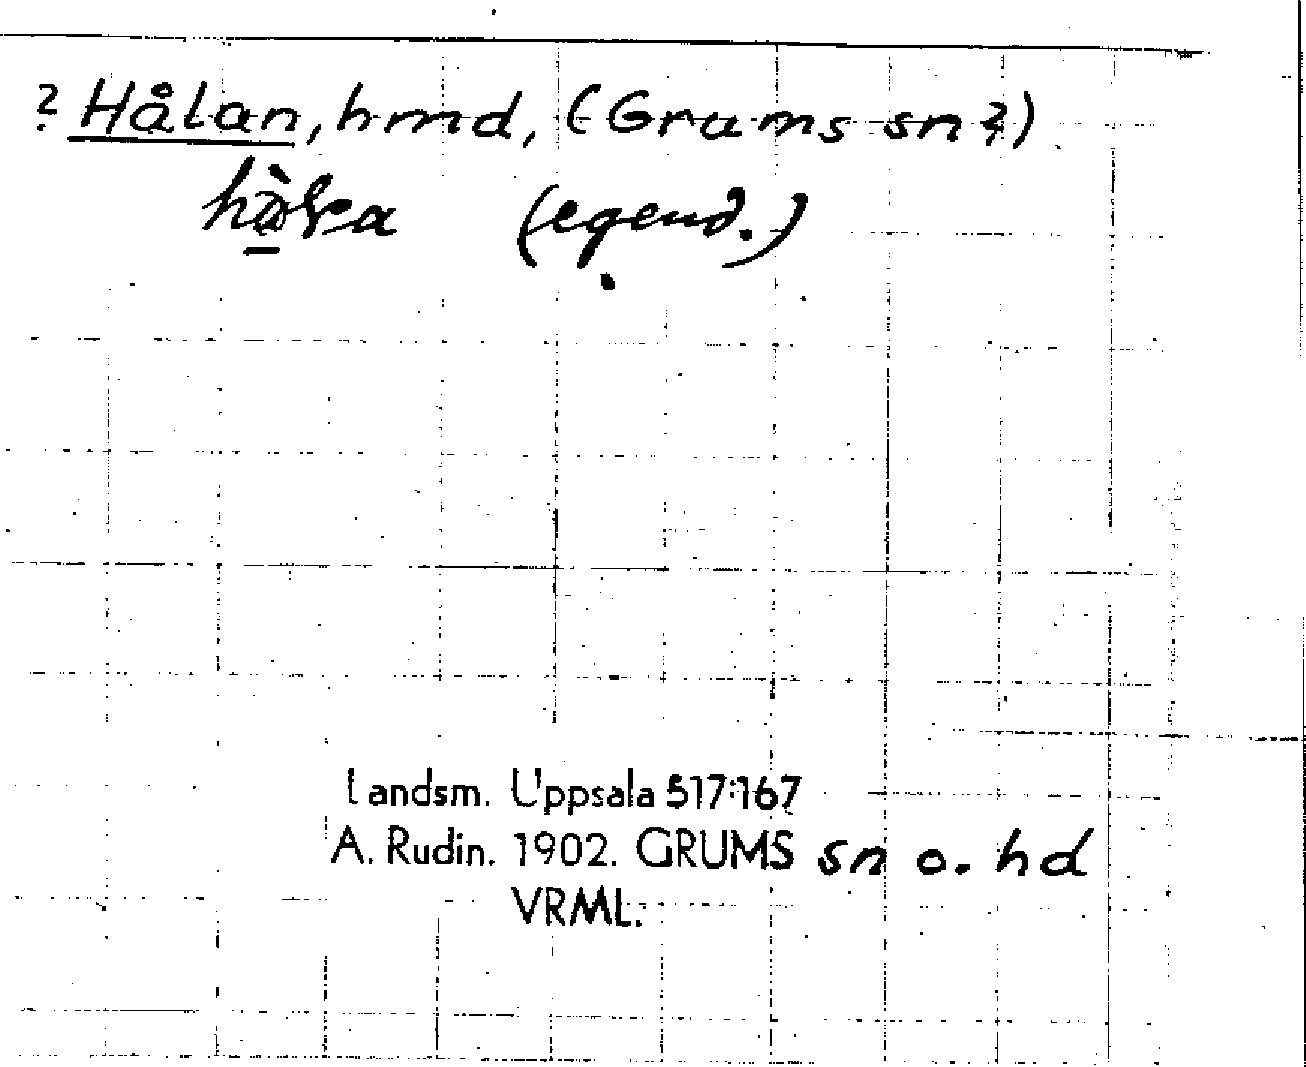 ? Hålan, hmd, (Grums sn?)
(egend.)
Landsm. Uppsala 517:167
A. Rudin. 1902. GRUMS sn o. hd
VRML.